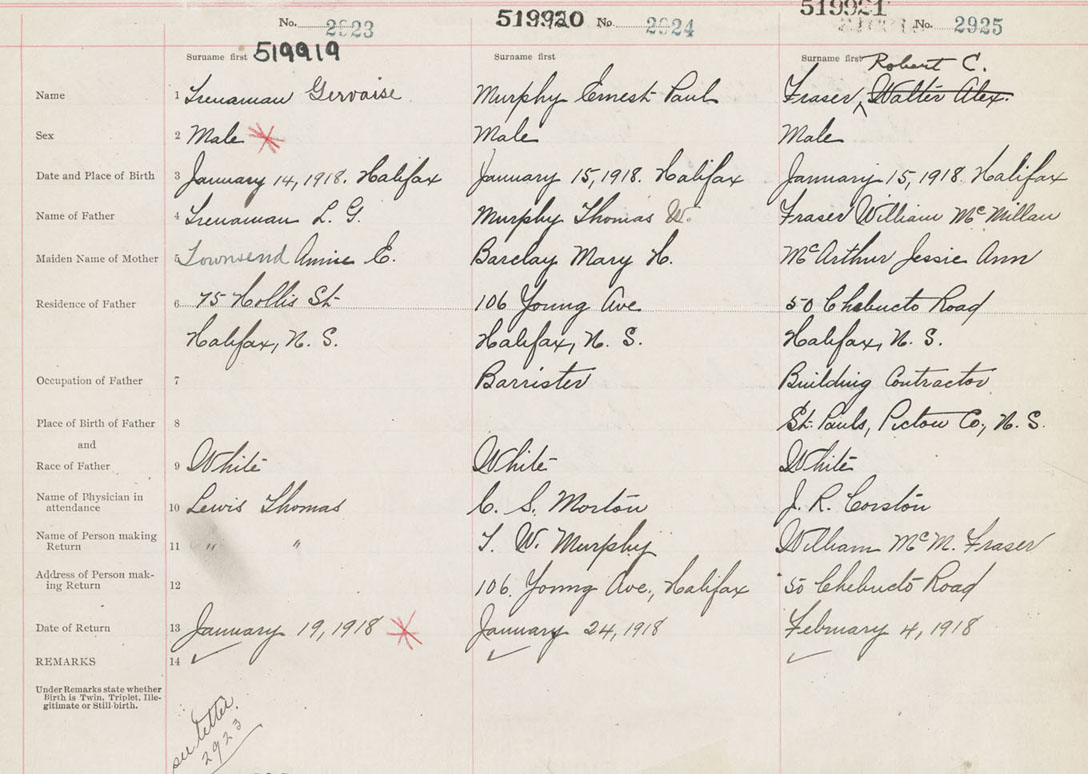 No. 2923
519920 No. 2924
519921 No. 2925
Surname first 519919
Surname first
Surname first Robert C.
Name 1 Trenaman Gervaise
Murphy Ernest Paul
Fraser, Walter Alex.
Sex 2 Male
Male
Male
Date and Place of Birth 3 January 14, 1918. Halifax
January 15, 1918. Halifax
January 15, 1918. Halifax
Name of Father 4 Trenaman L. G.
Murphy Thomas W.
Fraser William McMillan
Maiden Name of Mother 5 Townsend Annie E.
Barclay Mary H.
McArthur Jessie Ann
Residence of Father 6 75 Hollis St
106 Young Ave
50 Chebucto Road
Halifax, N. S.
Halifax, N. S.
Halifax, N. S.
Occupation of Father 7
Barrister
Building Contractor
Place of Birth of Father 8
St. Pauls, Pictou Co., N. S.
and
Race of Father 9 White
White
White
Name of Physician in attendance 10 Lewis Thomas
C. S. Morton
J. R. Corston
Name of Person making Return 11 " "
T. W. Murphy
William McM. Fraser
Address of Person mak-
ing Return 12
106 Young Ave., Halifax
50 Chebucto Road
Date of Return 13 January 19, 1918
January 24, 1918
February 4, 1918
REMARKS 14
Under Remarks state whether
Birth is Twin, Triplet, Ille-
gitimate or Still-birth.
see letter
2923